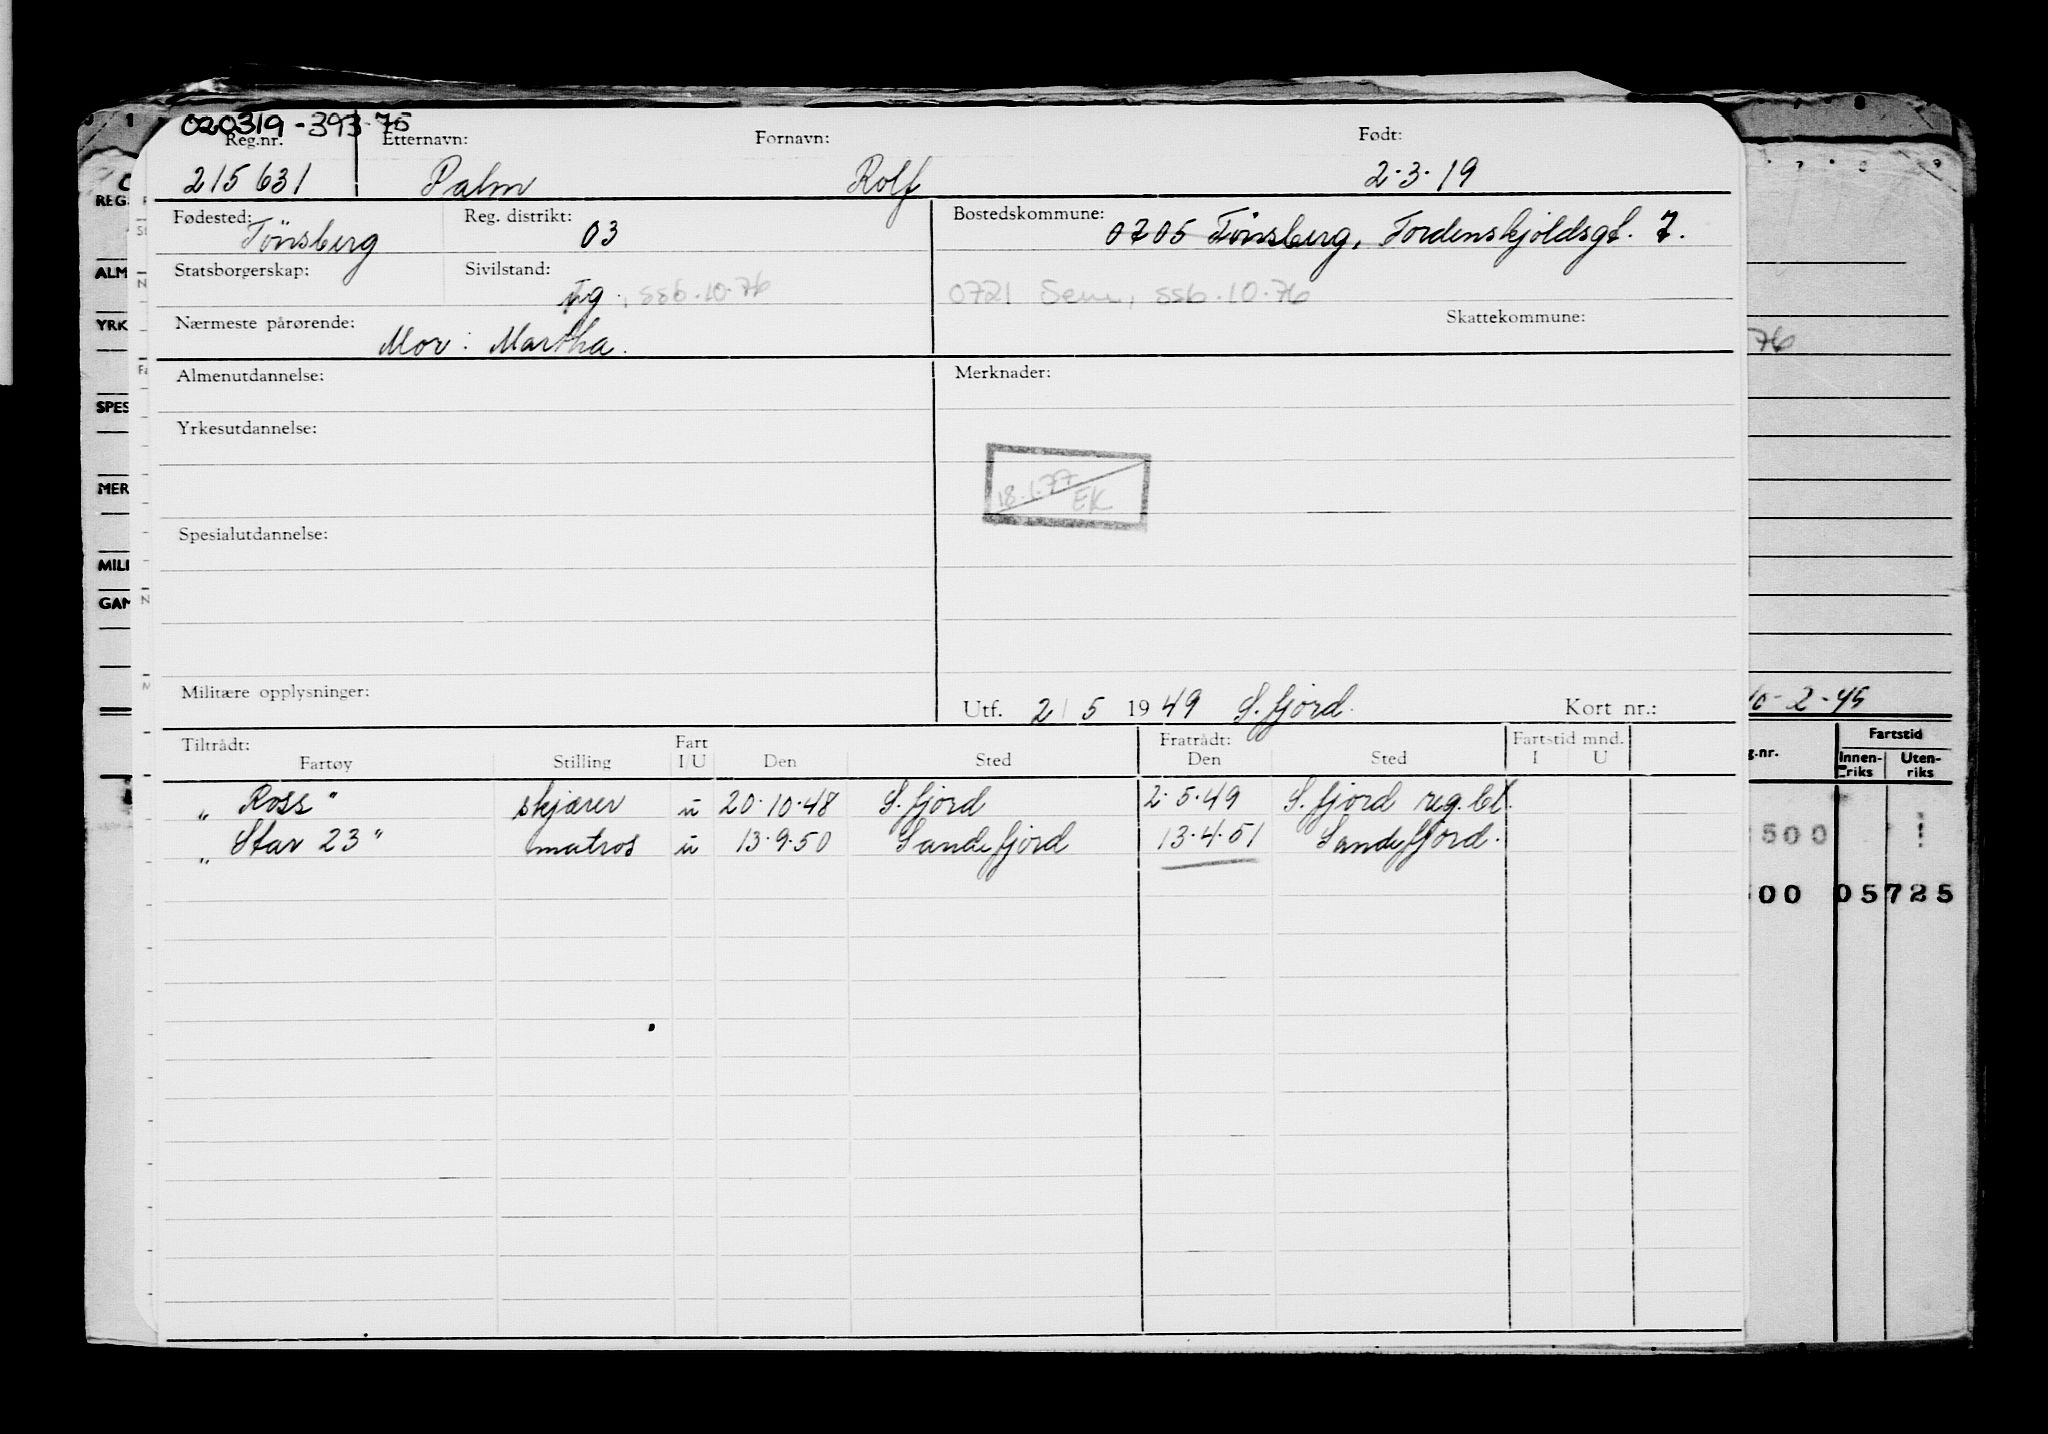 020319-393 75
Reg.nr. Etternavn: Fornavn: Født:
215631 Palm Rolf 2.3.19
Fødested: Tönsberg Reg. distrikt: 03 Bostedskommune: 0705 Tönsberg, Tordenskjoldsgt. 7.
Statsborgerskap: Sivilstand: ug., ssb.10.76 0721 Sem, ssb.10.76
Nærmeste pårørende: Mor: Martha. Skattekommune:
Almenutdannelse: Merknader:
Yrkesutdannelse:
18.1.77 EK
Spesialutdannelse:
Militære opplysninger:
Utf. 2/5 1949 S.fjord. Kort nr.:
Tiltrådt: Fart Fratrådt: Fartstid mnd.
Fartøy Stilling I/U Den Sted Den Sted I U
"Ross" skjærer u 20.10.48 S.fjord 2.5.49 S.fjord reg.bl.
"Star 23" matros u 13.9.50 Sandefjord 13.4.51 Sandefjord.
REG.
ALM
YRK
SPES
MER
MILI
GAM
76
10-2-45
g.nr. Fartstid
Innen-riks Uten-riks
500 !
00 05725